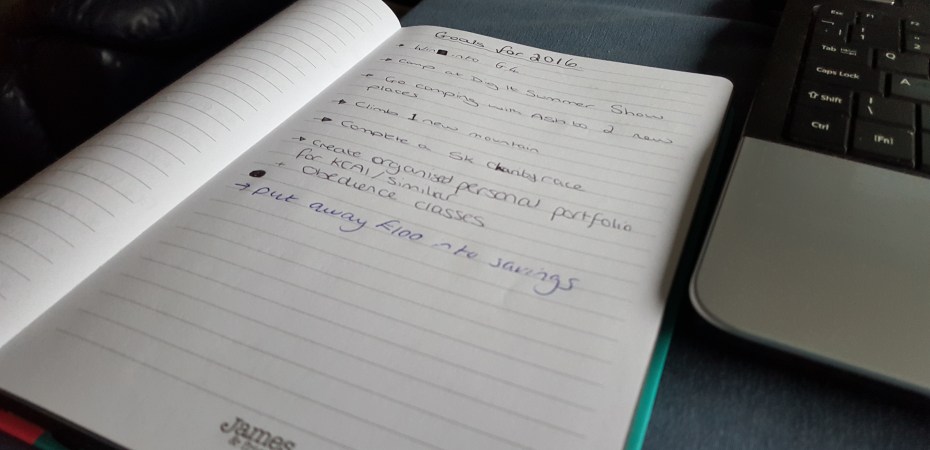 Goals for 2016
Win into G6
Camp at Dog It Summer Show
Go camping with Ash to 2 new
places
Climb 1 new mountain
Complete a 5K charity race
→ Create organised personal portfolio
for KCAI / Similar
Obedience classes
→ Put away £100 into savings
James
Esc
F1
Tab
Q
Caps Lock
A
Shift
\
Ctrl
(Fn)